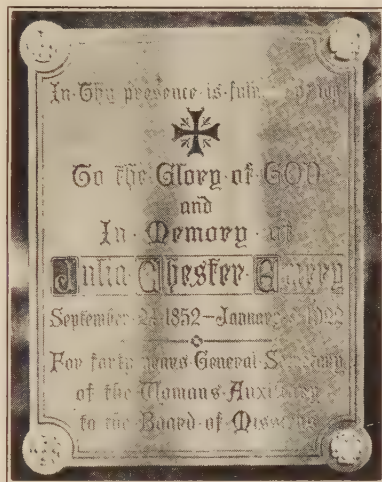 In Thy presence is fulness of joy
To the Glory of GOD
and
In Memory of
Julia Chester Emery
September 24 1852 — January 1922
For forty years General Secretary
of the Womans Auxiliary
to the Board of Missions